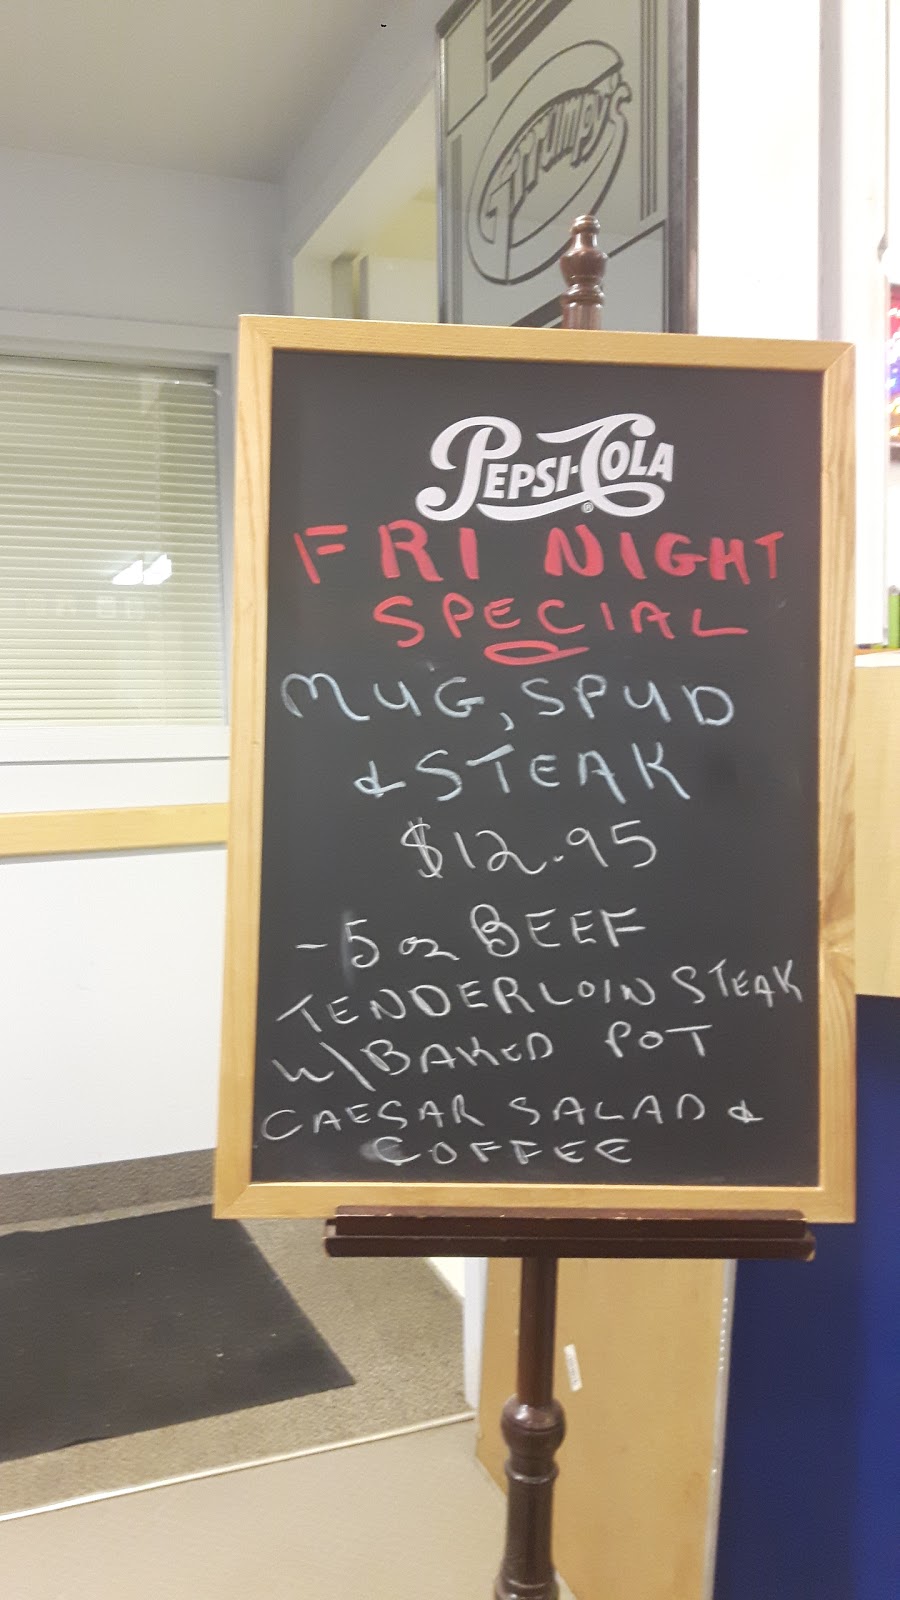 Grumpy's
PEPSI-COLA
FRI NIGHT
SPECIAL
MUG, SPUD
& STEAK
$12.95
- 5 oz BEEF
TENDERLOIN STEAK
W/ BAKED POT
CAESAR SALAD &
COFFEE